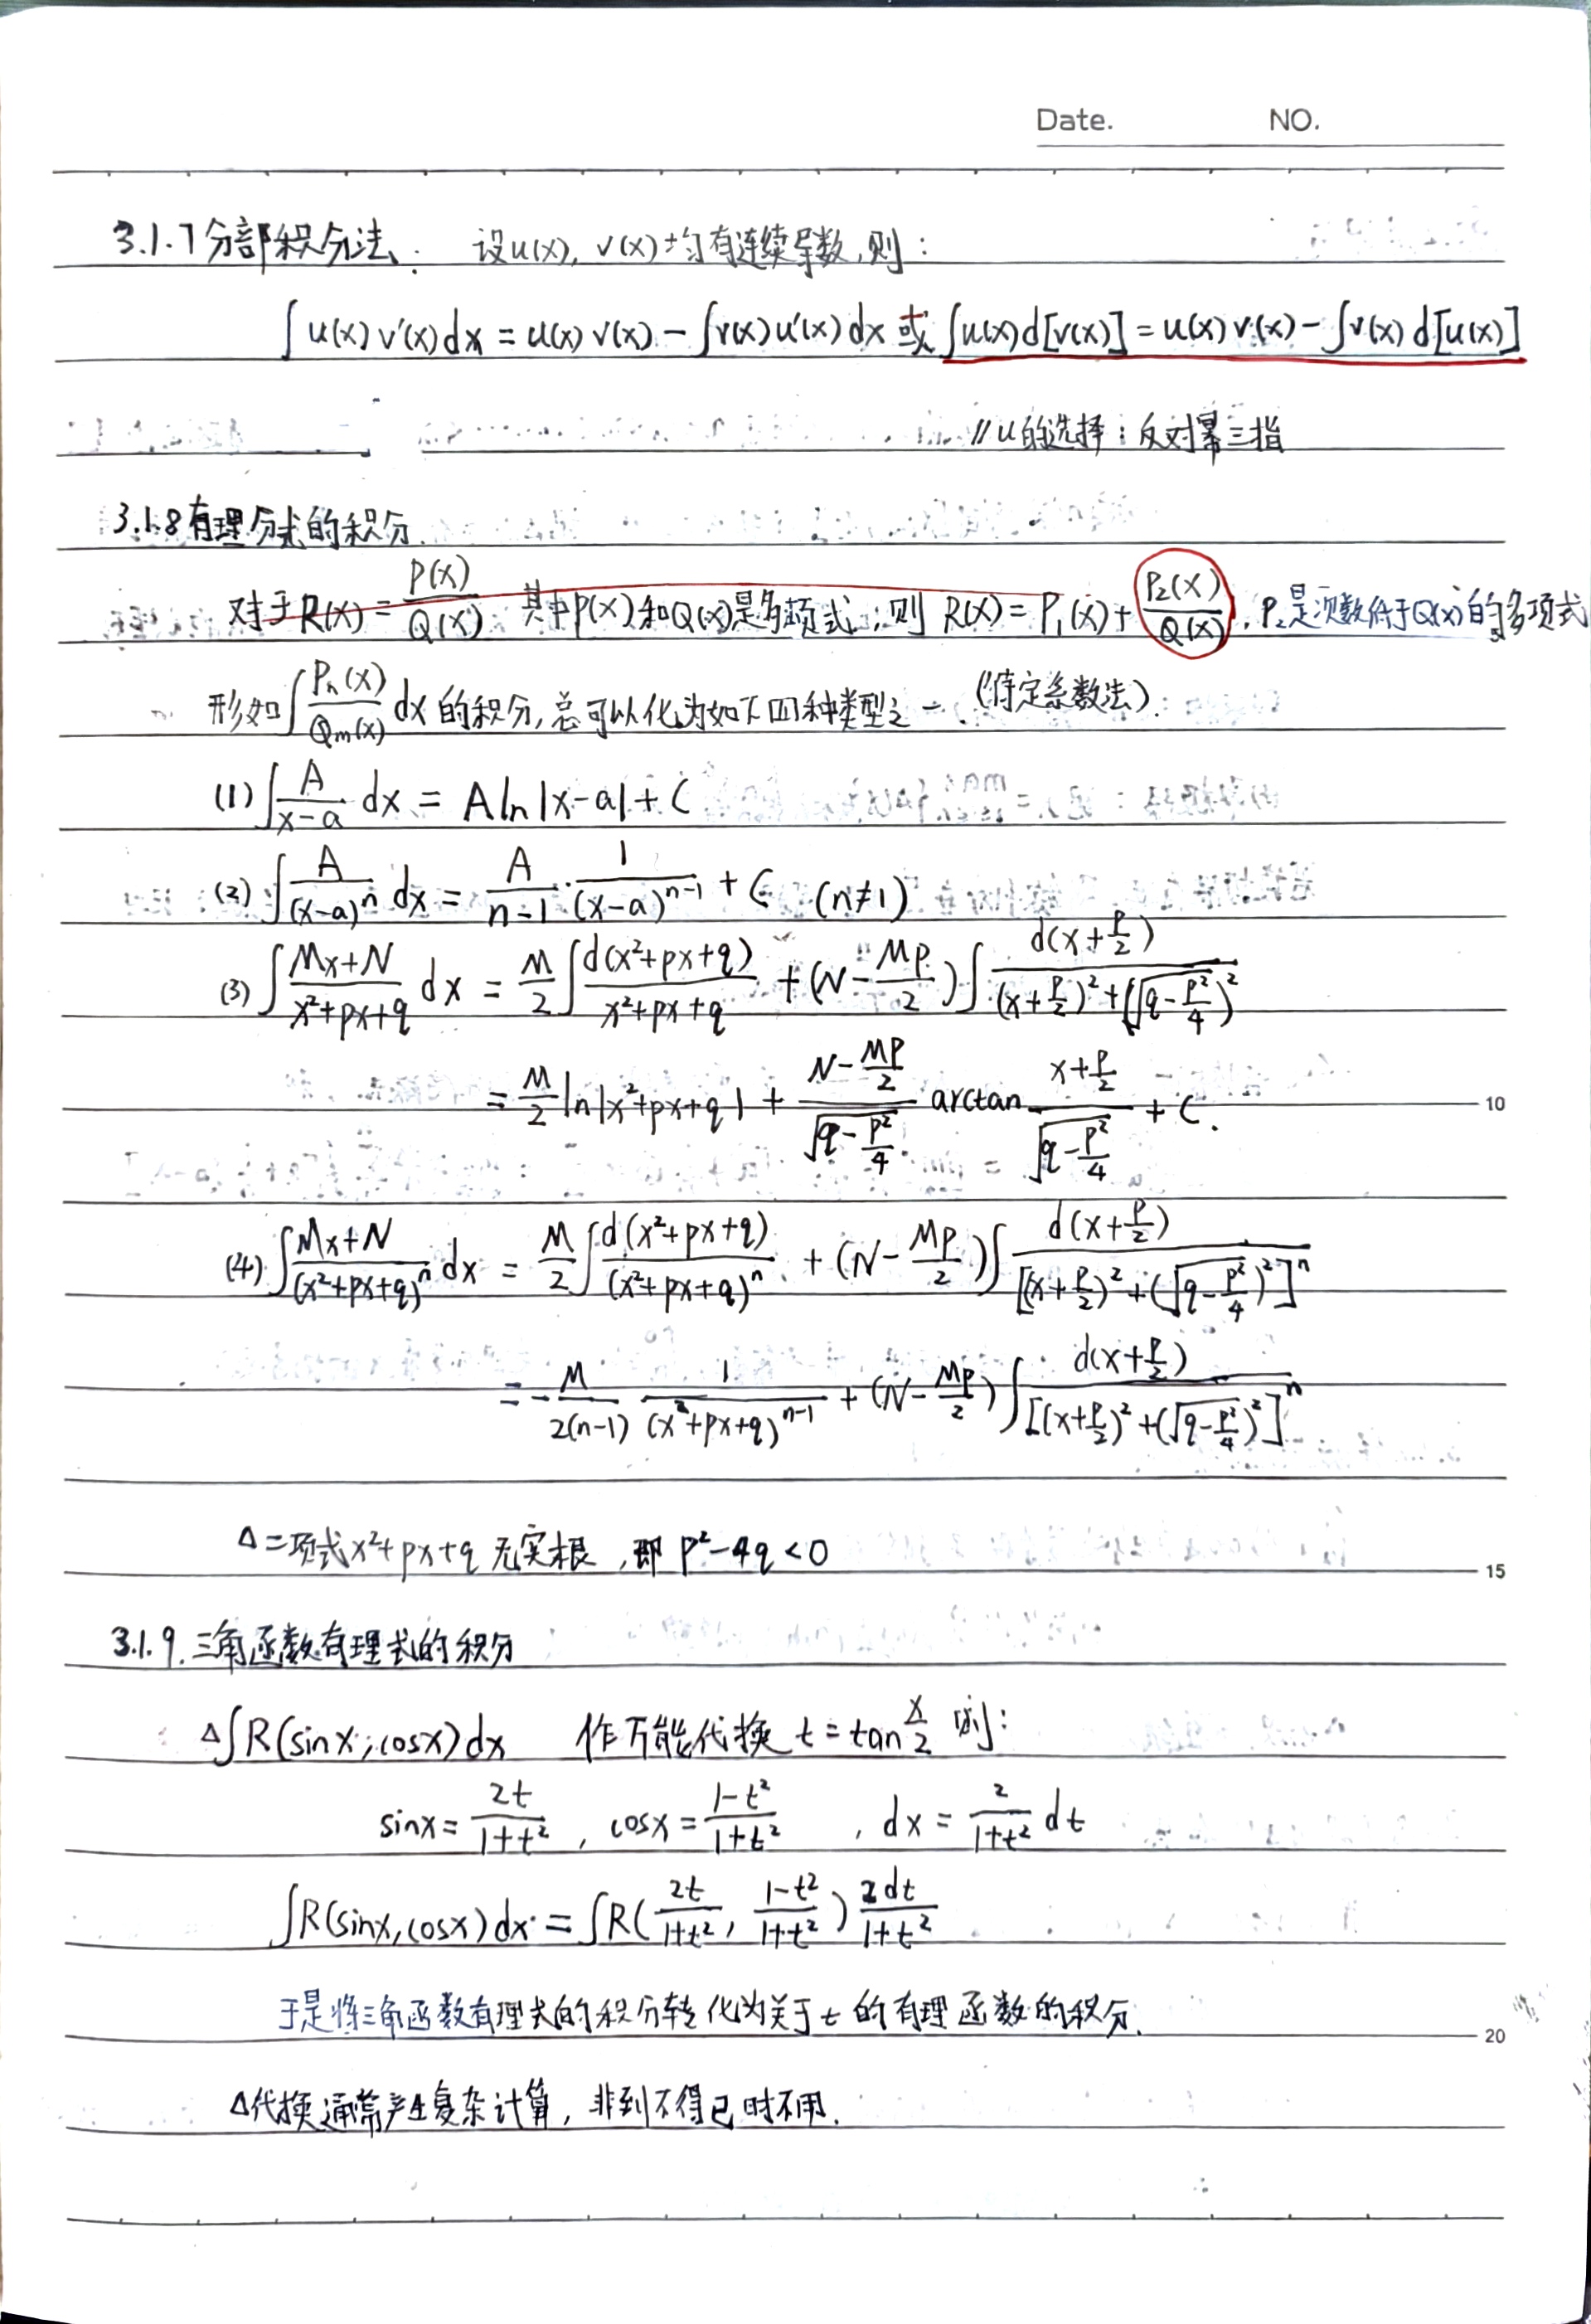 Date. NO.
3.1.7分部积分法: 设u(x), v(x)均有连续导数,则:
∫u(x)v'(x)dx = u(x)v(x) - ∫v(x)u'(x)dx 或 ∫u(x)d[v(x)] = u(x)v(x) - ∫v(x)d[u(x)]
//u的选择:反对幂三指
3.1.8有理分式的积分.
对于R(x) = P(x)/Q(x) 其中P(x)和Q(x)是多项式;则 R(x) = P₁(x) + P₂(x)/Q(x), P₂是次数低于Q(x)的多项式
形如∫Pn(x)/Qm(x) dx的积分,总可以化为如下四种类型之一. (待定系数法).
(1) ∫A/(x-a) dx = Aln|x-a| + C
(2) ∫A/(x-a)ⁿ dx = A/(n-1)·1/(x-a)ⁿ⁻¹ + C (n≠1)
(3) ∫(Mx+N)/(x²+px+q) dx = M/2 ∫d(x²+px+q)/(x²+px+q) + (N - Mp/2)∫d(x+p/2)/((x+p/2)²+(√(q-p²/4))²)
= M/2 ln|x²+px+q| + (N-Mp/2)/√(q-p²/4) arctan (x+p/2)/√(q-p²/4) + C.
(4) ∫(Mx+N)/(x²+px+q)ⁿ dx = M/2 ∫d(x²+px+q)/(x²+px+q)ⁿ + (N - Mp/2)∫d(x+p/2)/[(x+p/2)²+(√(q-p²/4))²]ⁿ
= -M/2(n-1) 1/(x²+px+q)ⁿ⁻¹ + (N - Mp/2)∫d(x+p/2)/[(x+p/2)²+(√(q-p²/4))²]ⁿ
10
Δ二项式x²+px+q无实根,即p²-4q<0
15
3.1.9.三角函数有理式的积分
Δ∫R(sinx,cosx)dx 作万能代换 t = tan x/2 则:
sinx = 2t/(1+t²), cosx = (1-t²)/(1+t²), dx = 2/(1+t²) dt
∫R(sinx,cosx)dx = ∫R(2t/(1+t²), (1-t²)/(1+t²)) 2dt/(1+t²)
于是将三角函数有理式的积分转化为关于t的有理函数的积分.
20
Δ代换通常产生复杂计算,非到不得已时不用.